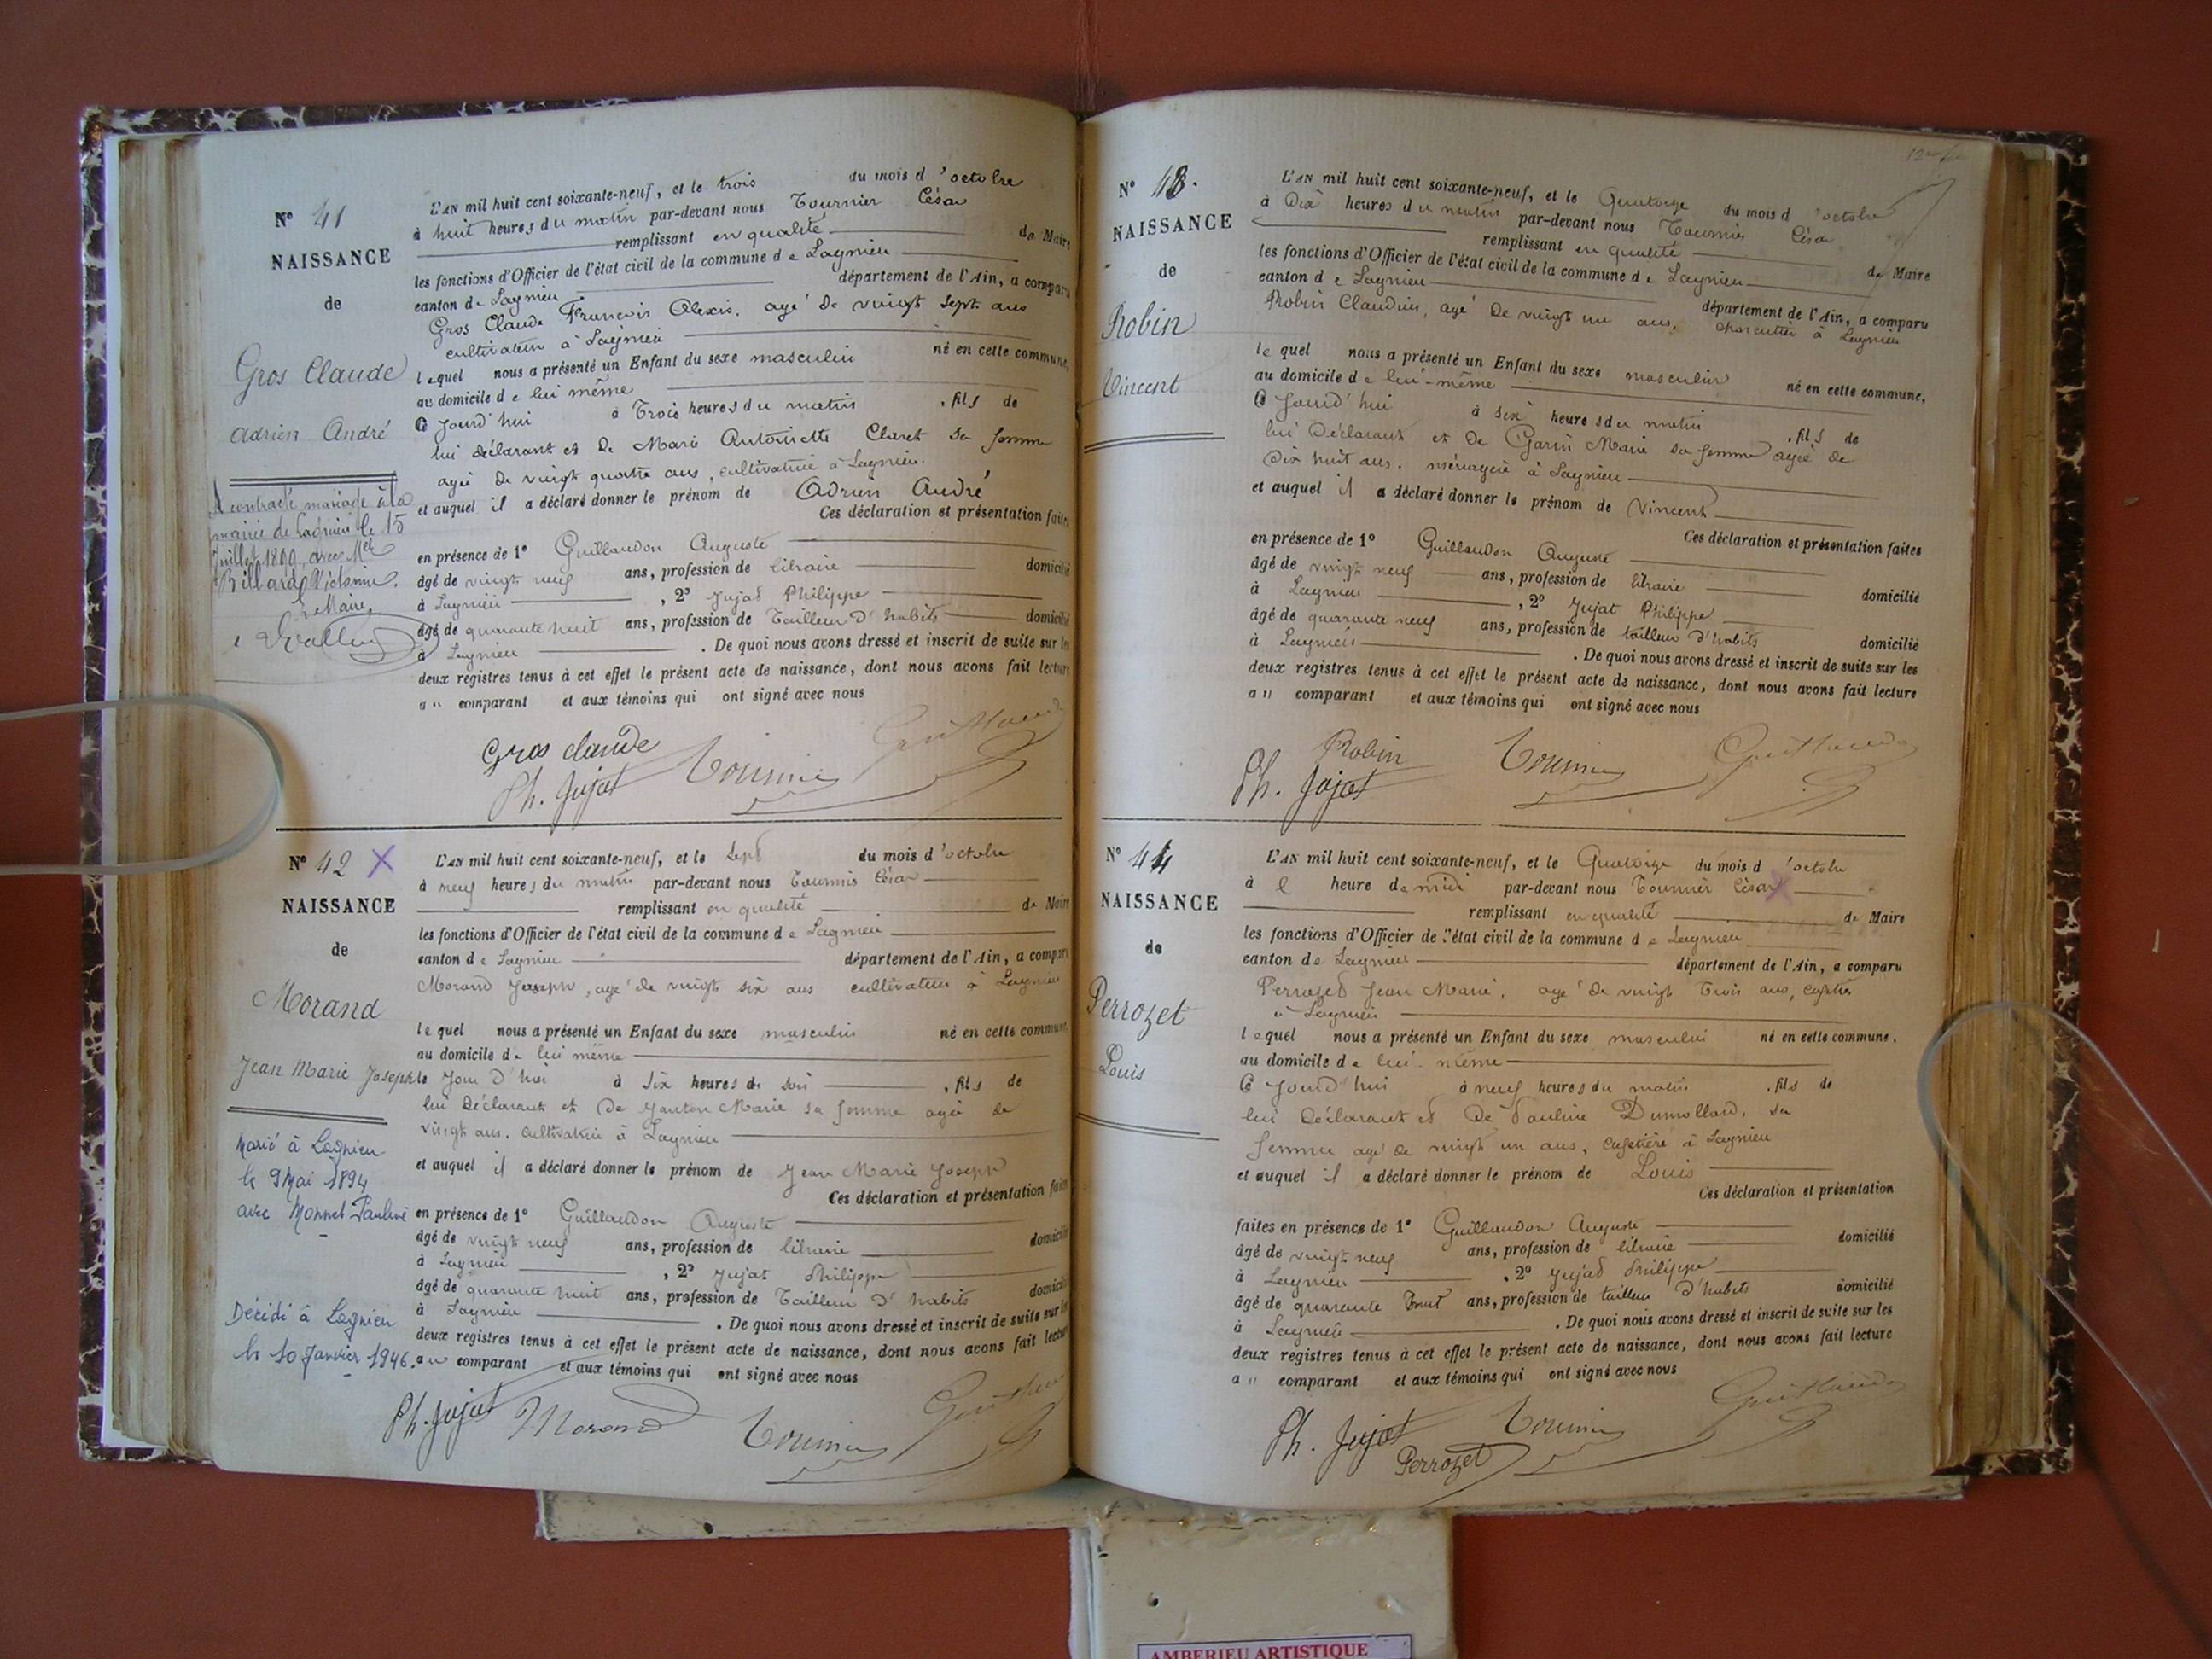 N° 41
NAISSANCE
de
Gros Claude
Adrien André
A contracté mariage à la
mairie de Lagnieu le 15
Juillet avec Melle
Billard Victorine.
Le Maire,
L'AN mil huit cent soixante-neuf, et le trois du mois d'octobre
à huit heures du matin par-devant nous Tournier César
remplissant en qualité de Maire
les fonctions d'Officier de l'état civil de la commune de Lagnieu
canton de Lagnieu département de l'Ain, a comparu
Gros Claude François Alexis, agé de vingt sept ans
cultivateur à Lagnieu
lequel nous a présenté un Enfant du sexe masculin né en cette commune,
au domicile de lui même
Ce jourd'hui à Trois heures du matin, fils de
lui déclarant et de Marie Antoinette Claret sa femme
agée de vingt quatre ans, cultivatrice à Lagnieu.
et auquel il a déclaré donner le prénom de Adrien André
Ces déclaration et présentation faites
en présence de 1° Guillaudon Auguste
âgé de vingt neuf ans, profession de libraire domicilié
à Lagnieu, 2° Jujat Philippe
âgé de quarante huit ans, profession de Tailleur d'habits domicilié
à Lagnieu. De quoi nous avons dressé et inscrit de suite sur les
deux registres tenus à cet effet le présent acte de naissance, dont nous avons fait lecture
au comparant et aux témoins qui ont signé avec nous
Gros claude
Ph. Jujat Tournier
N° 42 X
NAISSANCE
de
Morand
Jean Marie Joseph
Marié à Lagnieu
le 9 Mai 1894
avec Monnet Pauline
Décédé à Lagnieu
le 10 Janvier 1946.
L'AN mil huit cent soixante-neuf, et le Sept du mois d'octobre
à neuf heures du matin par-devant nous Tournier César
remplissant en qualité de Maire
les fonctions d'Officier de l'état civil de la commune de Lagnieu
canton de Lagnieu département de l'Ain, a comparu
Morand Joseph, agé de vingt six ans cultivateur à Lagnieu
lequel nous a présenté un Enfant du sexe masculin né en cette commune,
au domicile de lui même
Ce Jour d'hui à Six heures du soir, fils de
lui Déclarant et De Marie sa femme agée de
vingt ans. cultivatrice à Lagnieu
et auquel il a déclaré donner le prénom de Jean Marie Joseph
Ces déclaration et présentation faites
en présence de 1° Guillaudon Auguste
âgé de vingt neuf ans, profession de libraire domicilié
à Lagnieu, 2° Jujat Philippe
âgé de quarante huit ans, profession de Tailleur d'habits domicilié
à Lagnieu. De quoi nous avons dressé et inscrit de suite sur les
deux registres tenus à cet effet le présent acte de naissance, dont nous avons fait lecture
au comparant et aux témoins qui ont signé avec nous
Ph. Jujat Morand Tournier
N° 43.
NAISSANCE
de
Robin
Vincent
L'AN mil huit cent soixante-neuf, et le Quatorze du mois d'octobre
à Dix heures du matin par-devant nous Tournier César
remplissant en qualité de Maire
les fonctions d'Officier de l'état civil de la commune de Lagnieu
canton de Lagnieu département de l'Ain, a comparu
Robin Claudius, agé de vingt un ans, charcutier à Lagnieu
lequel nous a présenté un Enfant du sexe masculin né en cette commune,
au domicile de lui-même
Ce Jourd'hui à six heures du matin, fils de
lui Déclarant et de Garin Marie sa femme agée de
Dix huit ans. ménagère à Lagnieu
et auquel il a déclaré donner le prénom de Vincent
Ces déclaration et présentation faites
en présence de 1° Guillaudon Auguste
âgé de vingt neuf ans, profession de libraire domicilié
à Lagnieu, 2° Jujat Philippe
âgé de quarante neuf ans, profession de tailleur d'habits domicilié
à Lagnieu. De quoi nous avons dressé et inscrit de suite sur les
deux registres tenus à cet effet le présent acte de naissance, dont nous avons fait lecture
au comparant et aux témoins qui ont signé avec nous
Robin Tournier
Ph. Jujat
N° 44
NAISSANCE
de
Perrozet
Louis
L'AN mil huit cent soixante-neuf, et le Quatorze du mois d'octobre
à heure de midi par-devant nous Tournier César
remplissant en qualité de Maire
les fonctions d'Officier de l'état civil de la commune de Lagnieu
canton de Lagnieu département de l'Ain, a comparu
Perrozet Jean Marie, agé de vingt Trois ans,
à Lagnieu
lequel nous a présenté un Enfant du sexe masculin né en cette commune.
au domicile de lui-même
Ce Jourd'hui à neuf heures du matin, fils de
lui Déclarant et De Pauline Dumollard, sa
femme agé de vingt un ans, cafetière à Lagnieu
et auquel il a déclaré donner le prénom de Louis
Ces déclaration et présentation
faites en présence de 1° Guillaudon Auguste
âgé de vingt neuf ans, profession de libraire domicilié
à Lagnieu, 2° Jujat Philippe
âgé de quarante huit ans, profession de tailleur d'habits domicilié
à Lagnieu. De quoi nous avons dressé et inscrit de suite sur les
deux registres tenus à cet effet le présent acte de naissance, dont nous avons fait lecture
au comparant et aux témoins qui ont signé avec nous
Ph. Jujat Tournier
Perrozet
AMBERIEU ARTISTIQUE